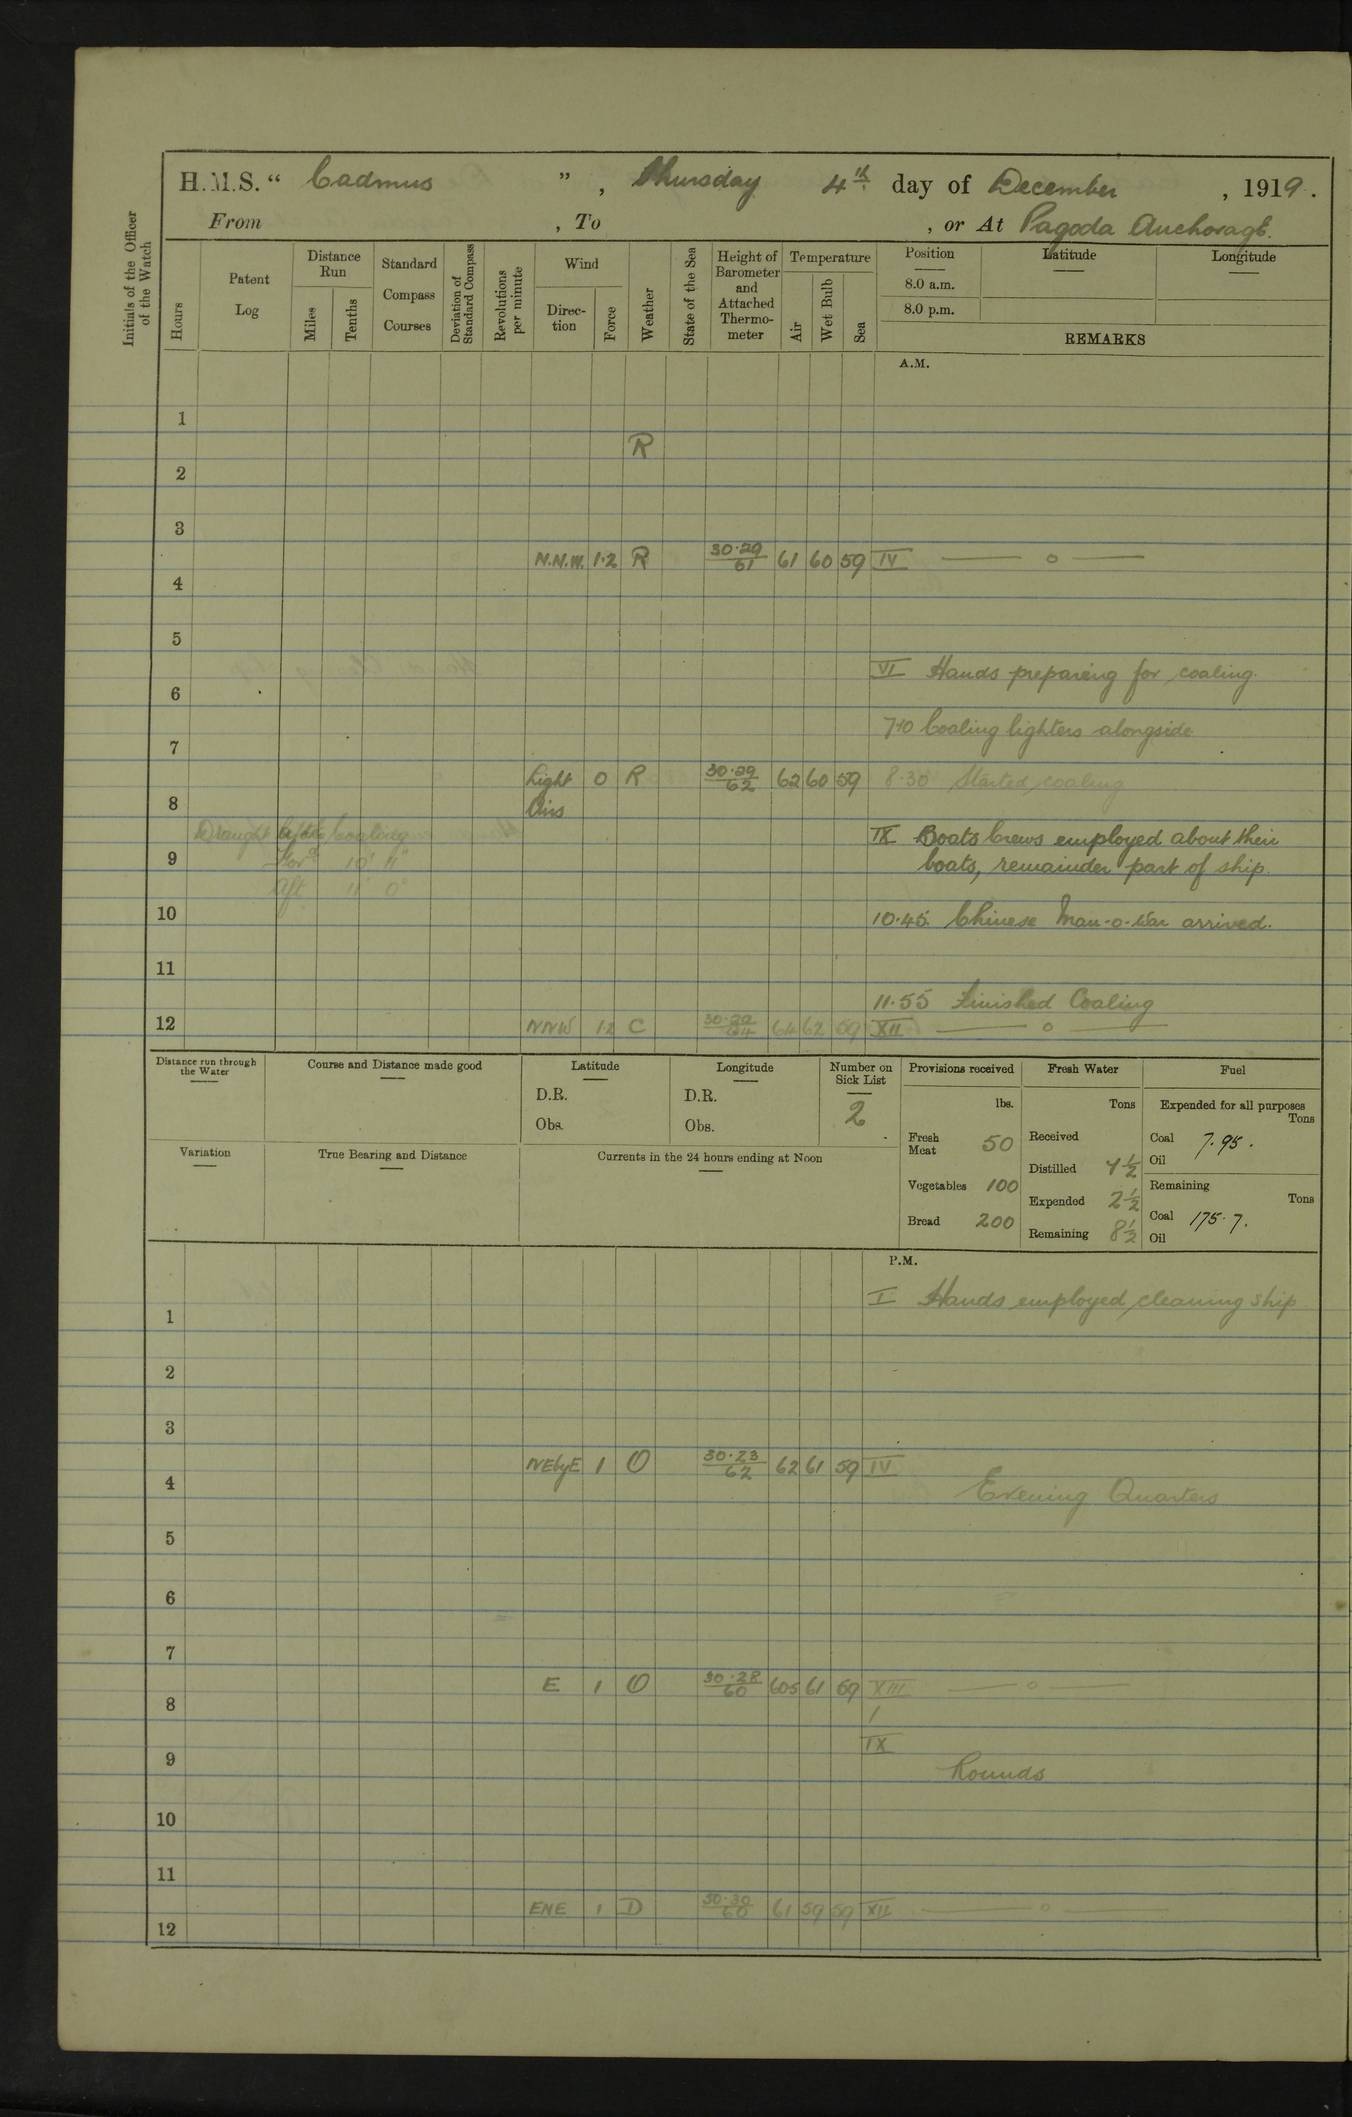 H.M.S. “ Cadmus ” , Thursday 4th day of December , 1919.
From , To , or At Pagoda Anchorage.
Initials of the Officer of the Watch
Hours
Patent Log
Distance Run
Miles
Tenths
Standard Compass Courses
Deviation of Standard Compass
Revolutions per minute
Wind
Direction
Force
Weather
State of the Sea
Height of Barometer and Attached Thermometer
Temperature
Air
Wet Bulb
Sea
Position
8.0 a.m.
8.0 p.m.
Latitude
Longitude
REMARKS
A.M.
1
R
2
3
N.N.W. 1·2 R 30·29/61 61 60 59 IV — o —
4
5
VI Hands preparing for coaling.
6
7·10 Coaling lighters alongside
7
Light Airs 0 R 30·29/62 62 60 59 8·30 Started coaling
8
Draught after Coaling
IX Boats Crews employed about their
9
For'd 10' 11"
boats, remainder part of ship.
Aft 11' 0"
10
10·45 Chinese Man-o-War arrived.
11
11·55 Finished Coaling
12 NNW 1·2 C 64 62 59 XII — o —
Distance run through the Water
Course and Distance made good
Latitude
D.R.
Obs.
Longitude
D.R.
Obs.
Number on Sick List
2
Variation
True Bearing and Distance
Currents in the 24 hours ending at Noon
Provisions received
lbs.
Fresh Meat 50
Vegetables 100
Bread 200
Fresh Water
Tons
Received
Distilled
Expended 2½
Remaining 8½
Fuel
Expended for all purposes
Tons
Coal 7·95.
Oil
Remaining
Tons
Coal 175·7.
Oil
P.M.
I Hands employed cleaning ship
1
2
3
NEbyE 1 O 30·23/62 62 61 59 IV
4
Evening Quarters
5
6
7
E 1 O 30·28/60 605 61 59 XIII — o —
8
IX
9
Rounds
10
11
ENE 1 D 30·30/60 61 59 59 XII — o —
12